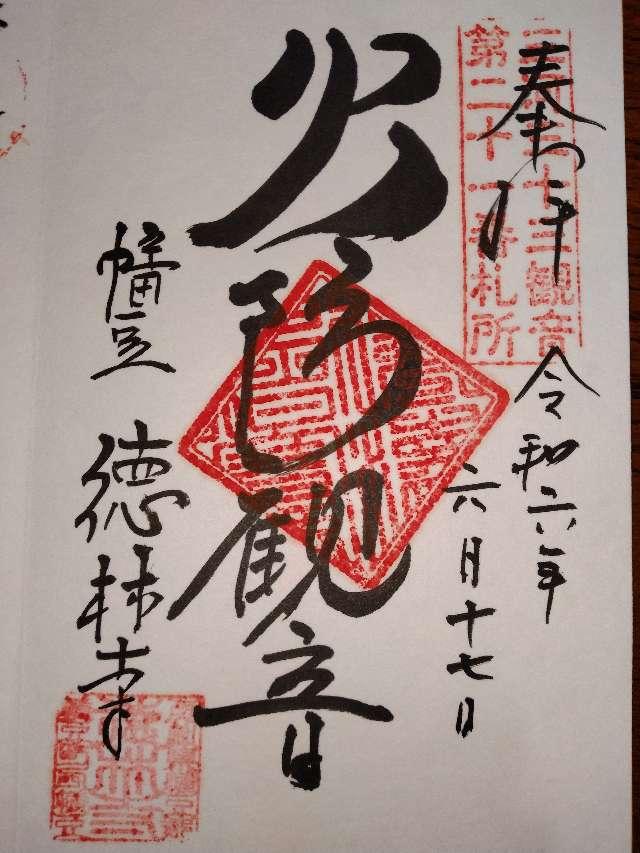 奉拝
三河三十三観音
第二十一番札所
令和六年
六月十七日
火防観音
幡豆
徳林寺